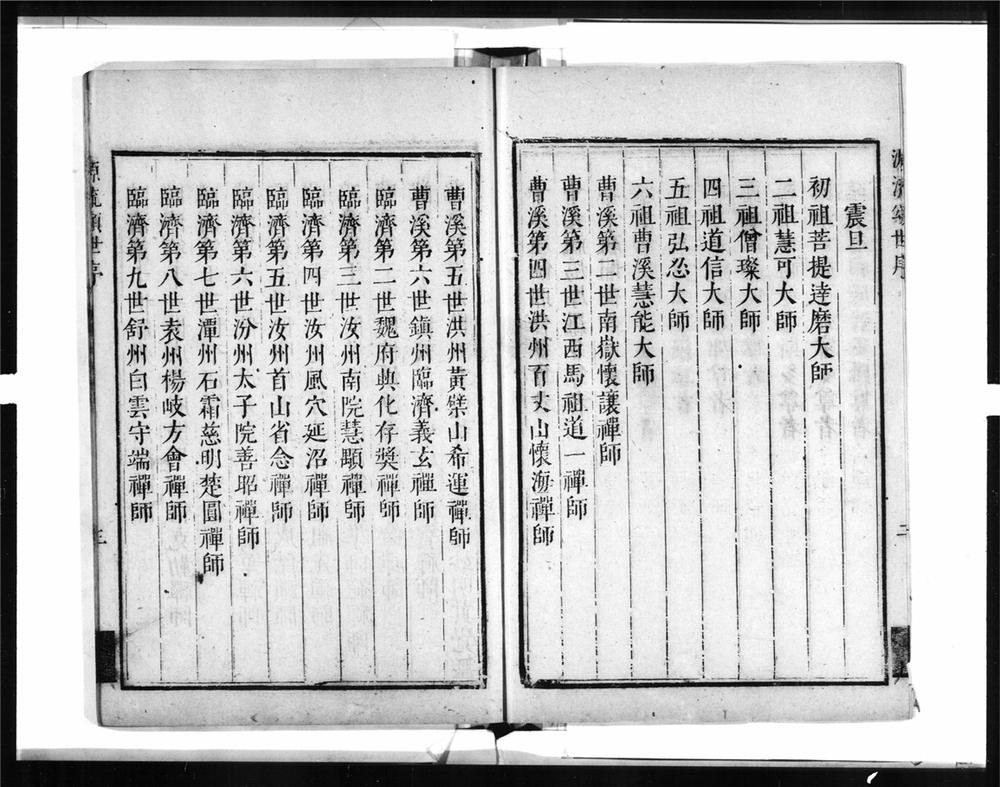 震旦
初祖菩提達磨大師
二祖慧可大師
三祖僧璨大師
四祖道信大師
五祖弘忍大師
六祖曹溪慧能大師
曹溪第二世南嶽懷讓禪師
曹溪第三世江西馬祖道一禪師
曹溪第四世洪州百丈山懷海禪師
二
曹溪第五世洪州黃檗山希運禪師
曹溪第六世鎮州臨濟義玄禪師
臨濟第二世魏府興化存獎禪師
臨濟第三世汝州南院慧顒禪師
臨濟第四世汝州風穴延沼禪師
臨濟第五世汝州首山省念禪師
臨濟第六世汾州太子院善昭禪師
臨濟第七世潭州石霜慈明楚圓禪師
臨濟第八世袁州楊岐方會禪師
臨濟第九世舒州白雲守端禪師
三